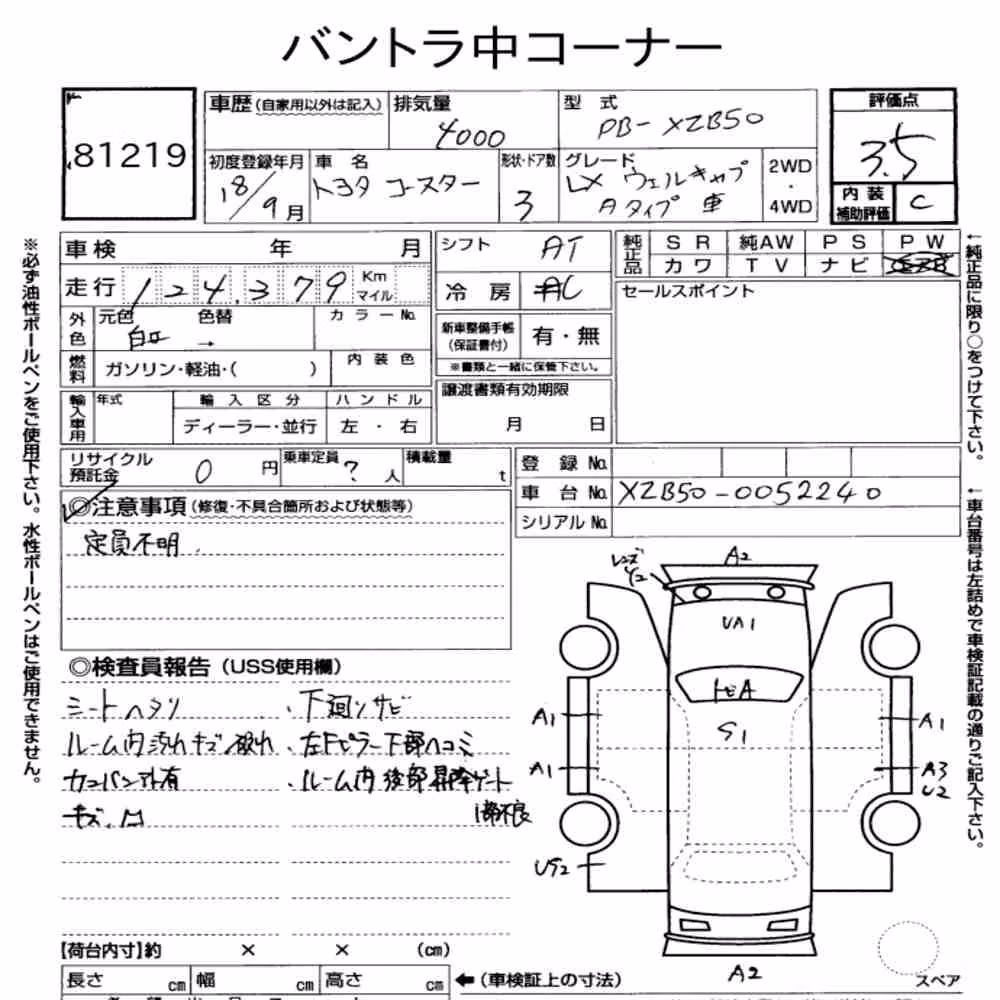 バントラ中コーナー
81219
車歴(自家用以外は記入)
排気量
4000
型 式
PB- XZB50
評価点
3.5
内装補助評価
C
初度登録年月
18/9月
車 名
トヨタ コースター
形状・ドア数
3
グレード
LX ウェルキャブ
Aタイプ 車
2WD
・
4WD
車検 年 月
走行 124,379 Km マイル
外色
元色 色替
白II →
カラーNo.
燃料
ガソリン・軽油・( )
内装色
輸入車用
年式
輸入区分
ディーラー・並行
ハンドル
左・右
シフト AT
冷房 AC
新車整備手帳
(保証書付)
有・無
※書類と一緒に保管下さい。
譲渡書類有効期限
月 日
純正品
SR 純AW PS PW
カワ TV ナビ
セールスポイント
リサイクル預託金 0 円
乗車定員 ? 人
積載量 t
登録No.
車台No. XZB50-0052240
シリアルNo.
◎注意事項(修復・不具合箇所および状態等)
定員不明.
◎検査員報告(USS使用欄)
シートヘタリ
ルーム内汚れキズ破れ
カンバン跡有
キズ.凹
・下廻りサビ
・左Fピラー下部ヘコミ
・ルーム内後部昇降ゲート
1部不良
レンズ
Y2
A2
UA1
トビA
S1
A1
A1
A1
A3
U2
US2
A2
スペア
【荷台内寸】約 × × (cm)
長さ cm 幅 cm 高さ cm
←(車検証上の寸法)
※必ず油性ボールペンをご使用下さい。水性ボールペンはご使用できません。
←純正品に限り○をつけて下さい。
←車台番号は左詰めで車検証記載の通りご記入下さい。